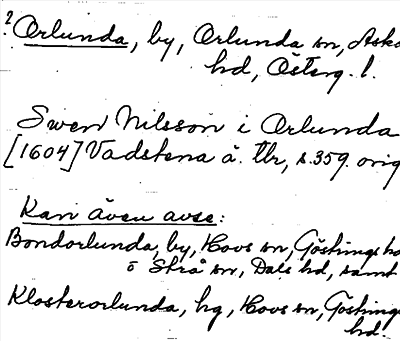 ? Orlunda, by, Orlunda sn, Asko
hd, Österg. l.
Swen Nilsson i Orlunda
[1604] Vadstena ä. tlr, s. 359. orig
Kan även avse:
Bondorlunda, by, Hovs sn, Göstrings hd
o Strå sn, Dals hd, samt
Klosterorlunda, hg, Hovs sn, Göstrings
hd.